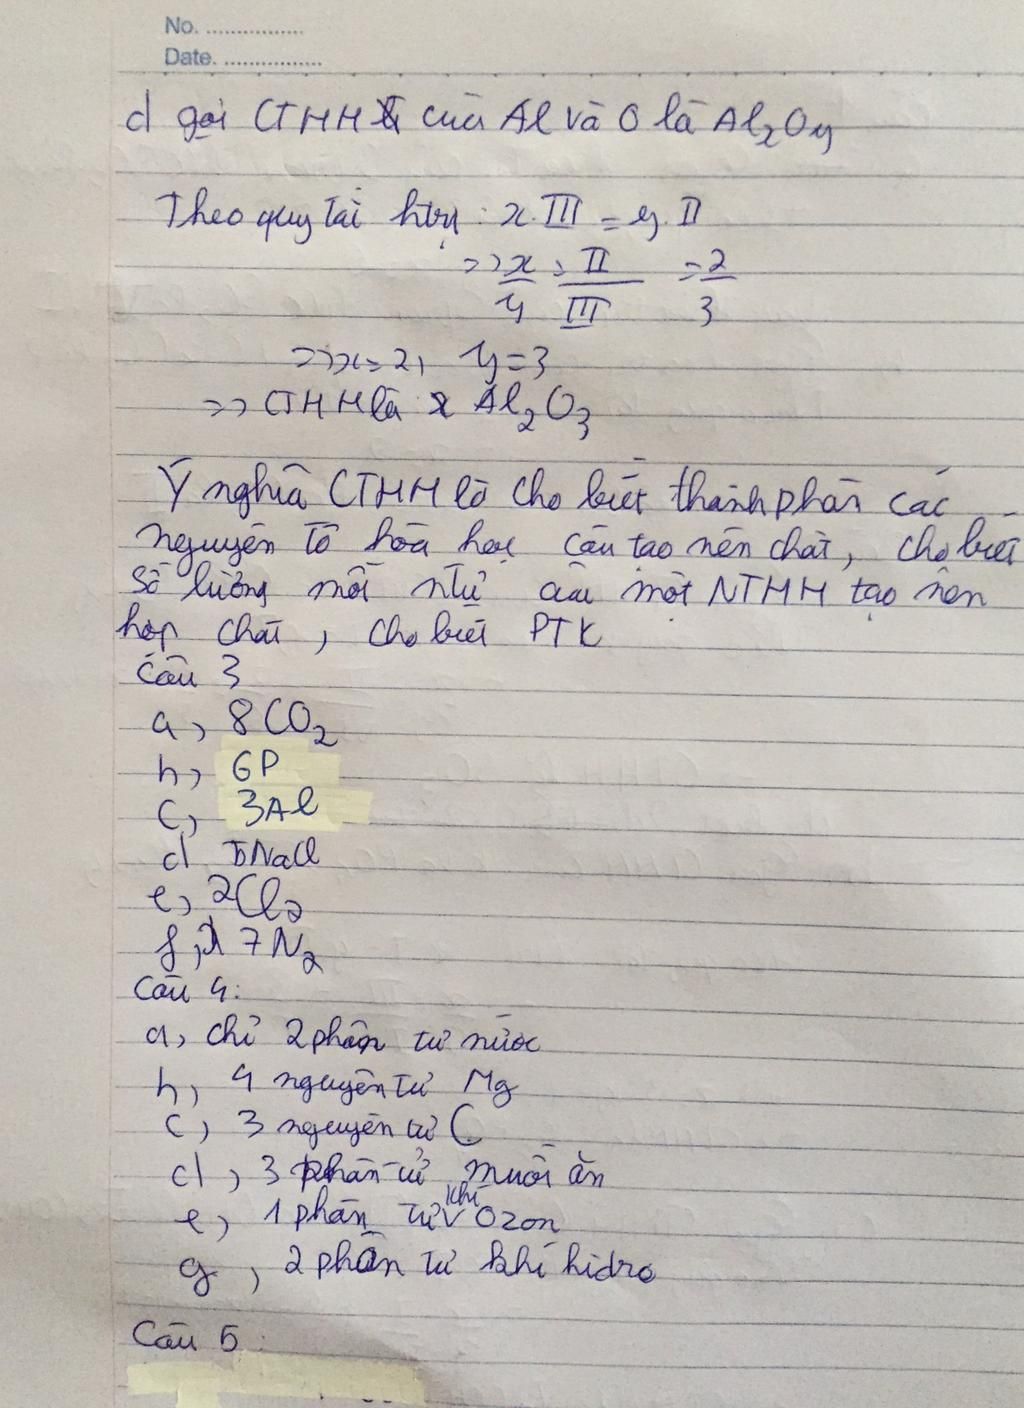 No. ................
Date. ................
d gọi CTHH của Al và O là Al₂Oy
Theo quy tắc htrị: x.III = y.II
=> x/y = II/III = 2/3
=> x = 2, y = 3
=> CTHH là Al₂O₃
Ý nghĩa CTHH là cho biết thành phần các
nguyên tố hóa học cấu tạo nên chất, cho biết
số lượng mỗi ntử của một NTHH tạo nên
hợp chất, cho biết PTK
Câu 3
a, 8CO₂
b, 6P
c, 3Al
d 5NaCl
e, 2Cl₂
f, 7N₂
Câu 4:
a, chỉ 2 phân tử nước
b, 4 nguyên tử Mg
c, 3 nguyên tử C
d, 3 phân tử muối ăn
e, 1 phân tử khí Ozon
g, 2 phân tử khí hidro
Câu 5: